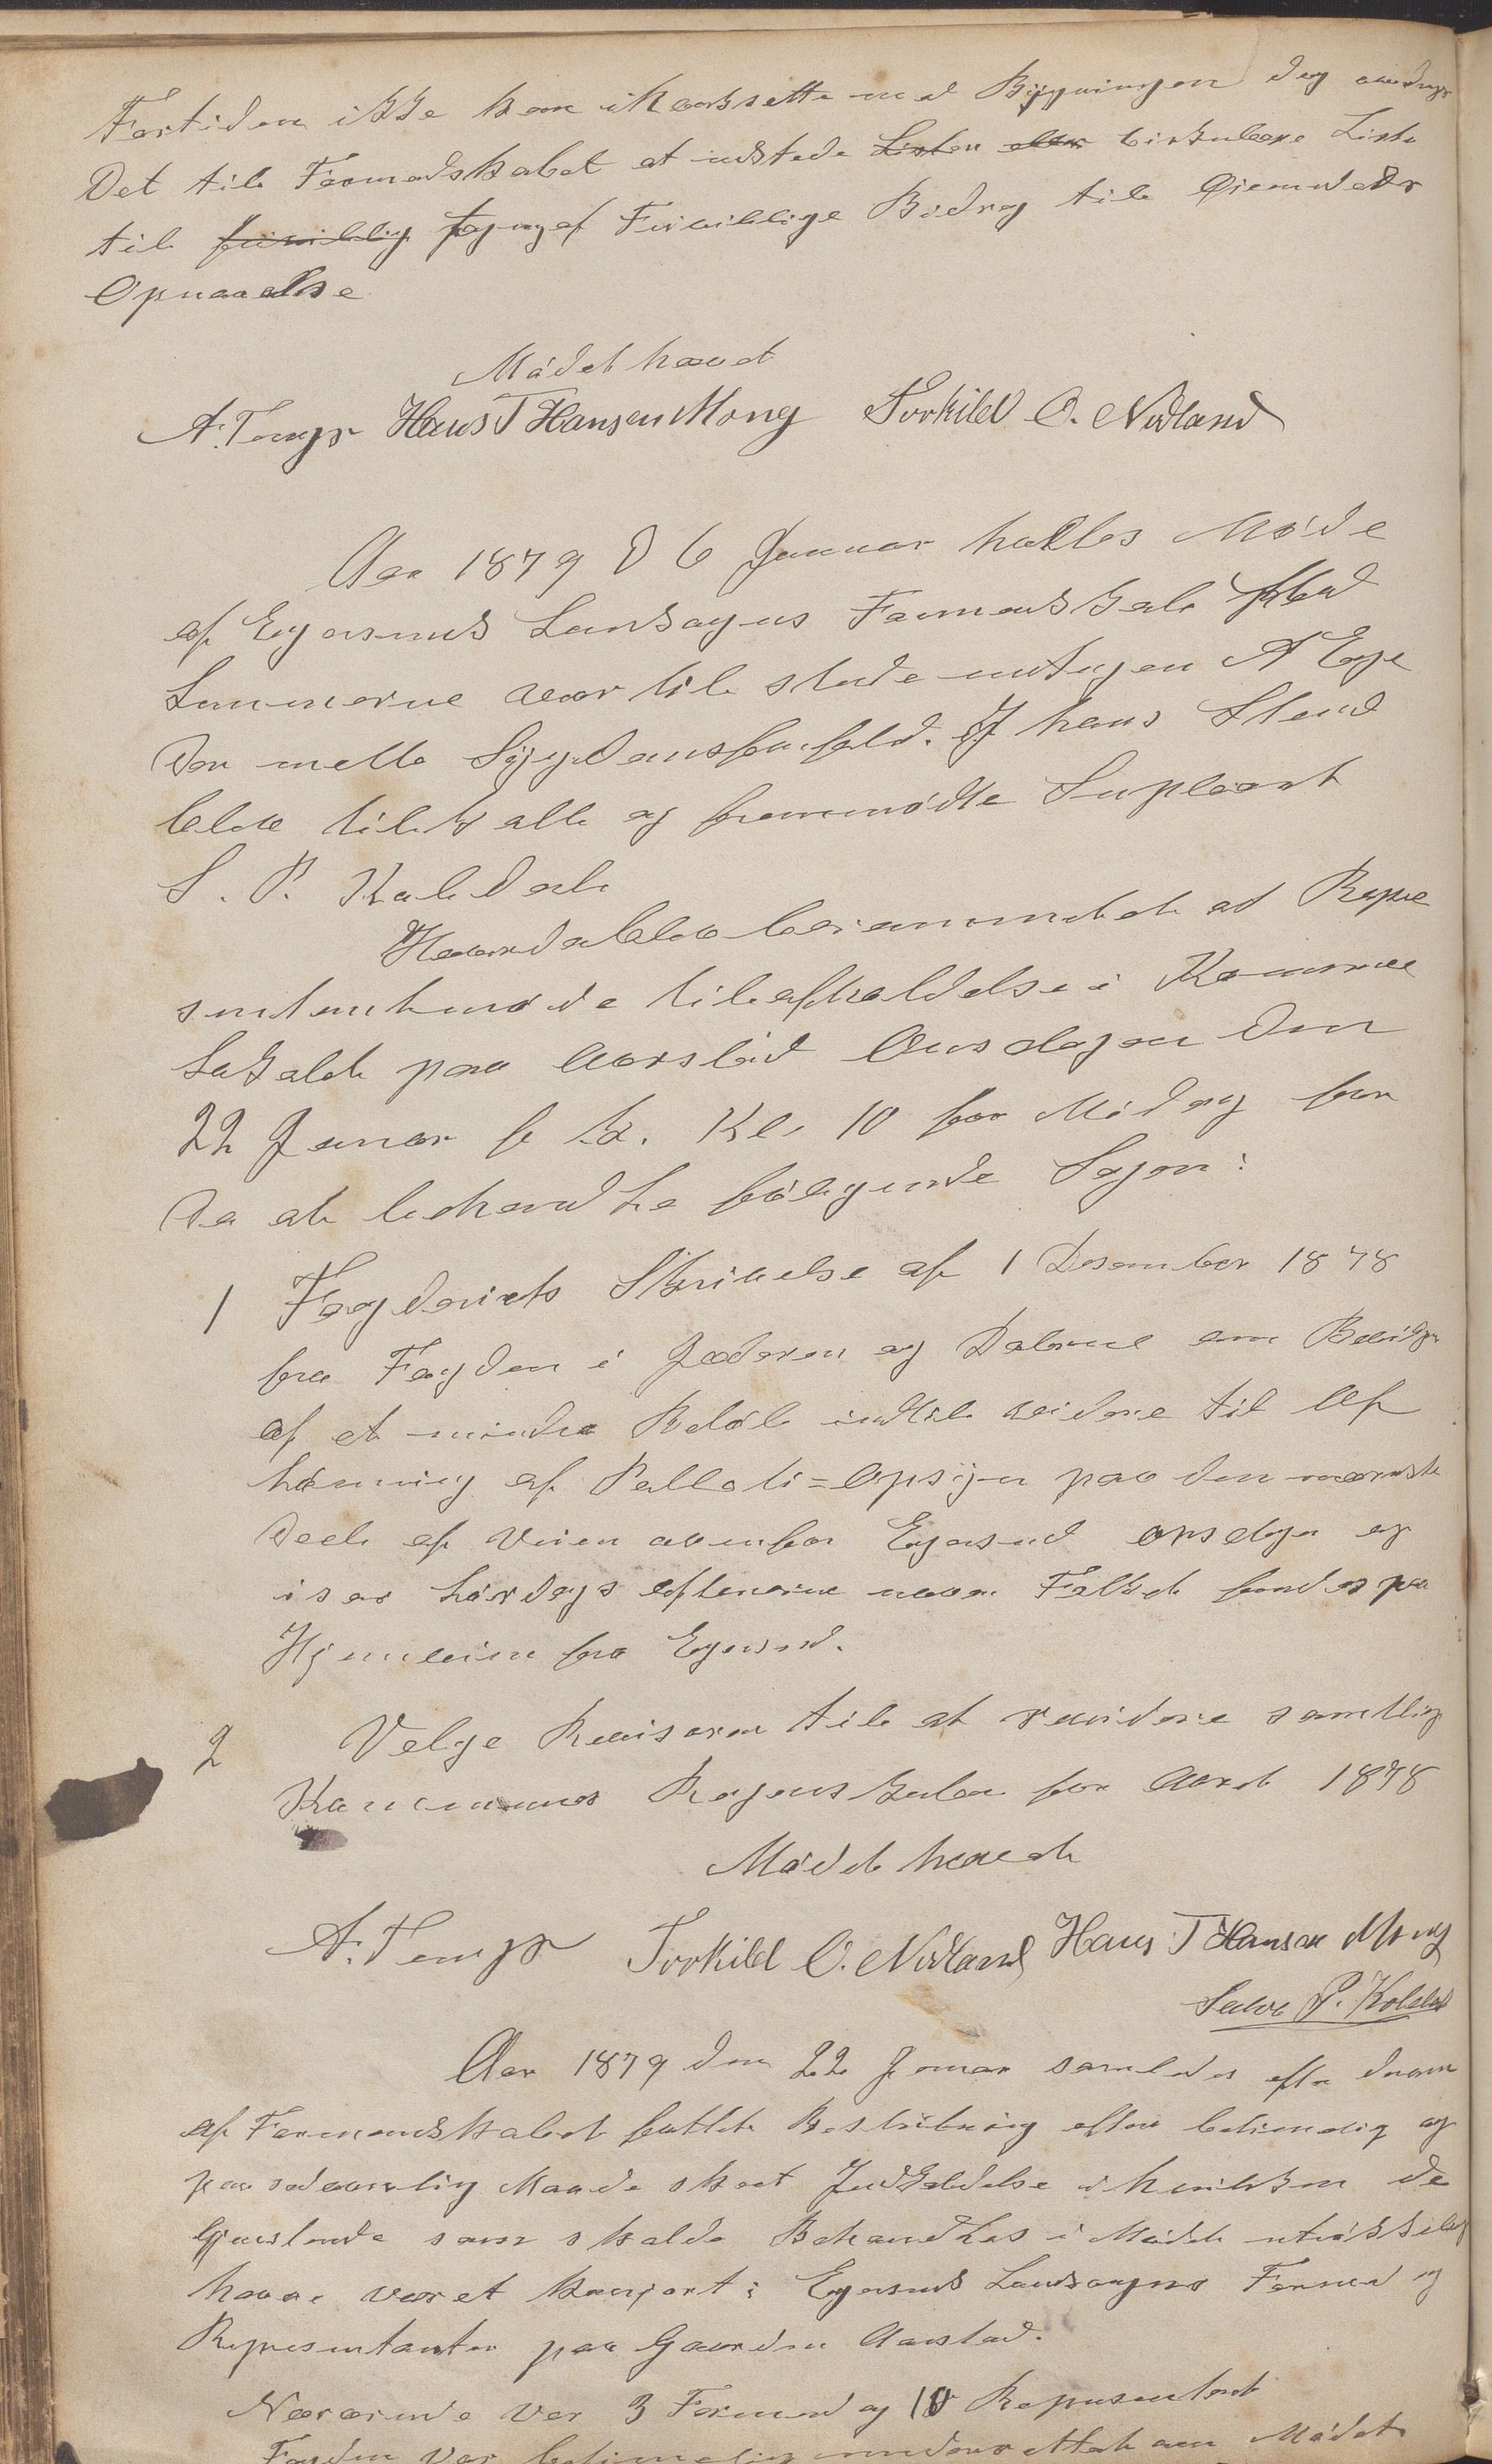 Fortiden ikke kan ikverksette med Bygningen dog overdrges
Det till Formadskabet at udstede Listen eller cirkulere Liste
till frivillig Frivillige Bidrag till Øiemedets
Opnaaelse
Mödet hævet
A. Tengs Hans T Hansen Mong Torkild O. Nodland
Aar 1879 d 6 Januar holtes Möde
af Egersunds Landsogns Formandskab
Lemmerne var till stede undtagen A Ege
der melte Sygdomsforfald. I hans Sted
blev tilkalt og fremmödte Supleant
S. P. Koldal
Hvorda blev berammet et Repre
sentantmöde til afholdelse i Kommue
lokalet paa Aarstad Onsdagen den
22 Januar f k. Kl. 10 for Midag for
da at behandle fölgende Sager:
1 Fogderiets Skrivelse af 1 Desember 1878
fra Fogden i Jæderen og Dalerne om Bevilgn
af et mindre Belöb indtil videre til Af
hönning af Politi=Opsyn paa den nærmste
Deel af Veien ovenfor Egersund onsdge og
især Lördags eftenerne naar Folket findes paa
Hjemveien fra Egersund.
2 Velge Revisorer till at revidere samtlige
Kommunes Regenskaber for Aaret 1878
Mödet hævet
A. Tengs Torkild O. Nodland Hans T Hansen Mong
Salve P. Koldal
Aar 1879 den 22 Januar samledes efter
af Formandskabet fattet Beslutning efter betimelig og
paa sedvanlig Maade skeet Indkaldelse i hvilken de
Gjenstande som skulde Behandles i Mödet
have været kungjort: Egersunds Landsogns Formend og
Representanter paa Gaarden Aarstad.
Nærværende var 3 Formend og 10 Represintant
Fogden var betimelig underrettet om Mödet